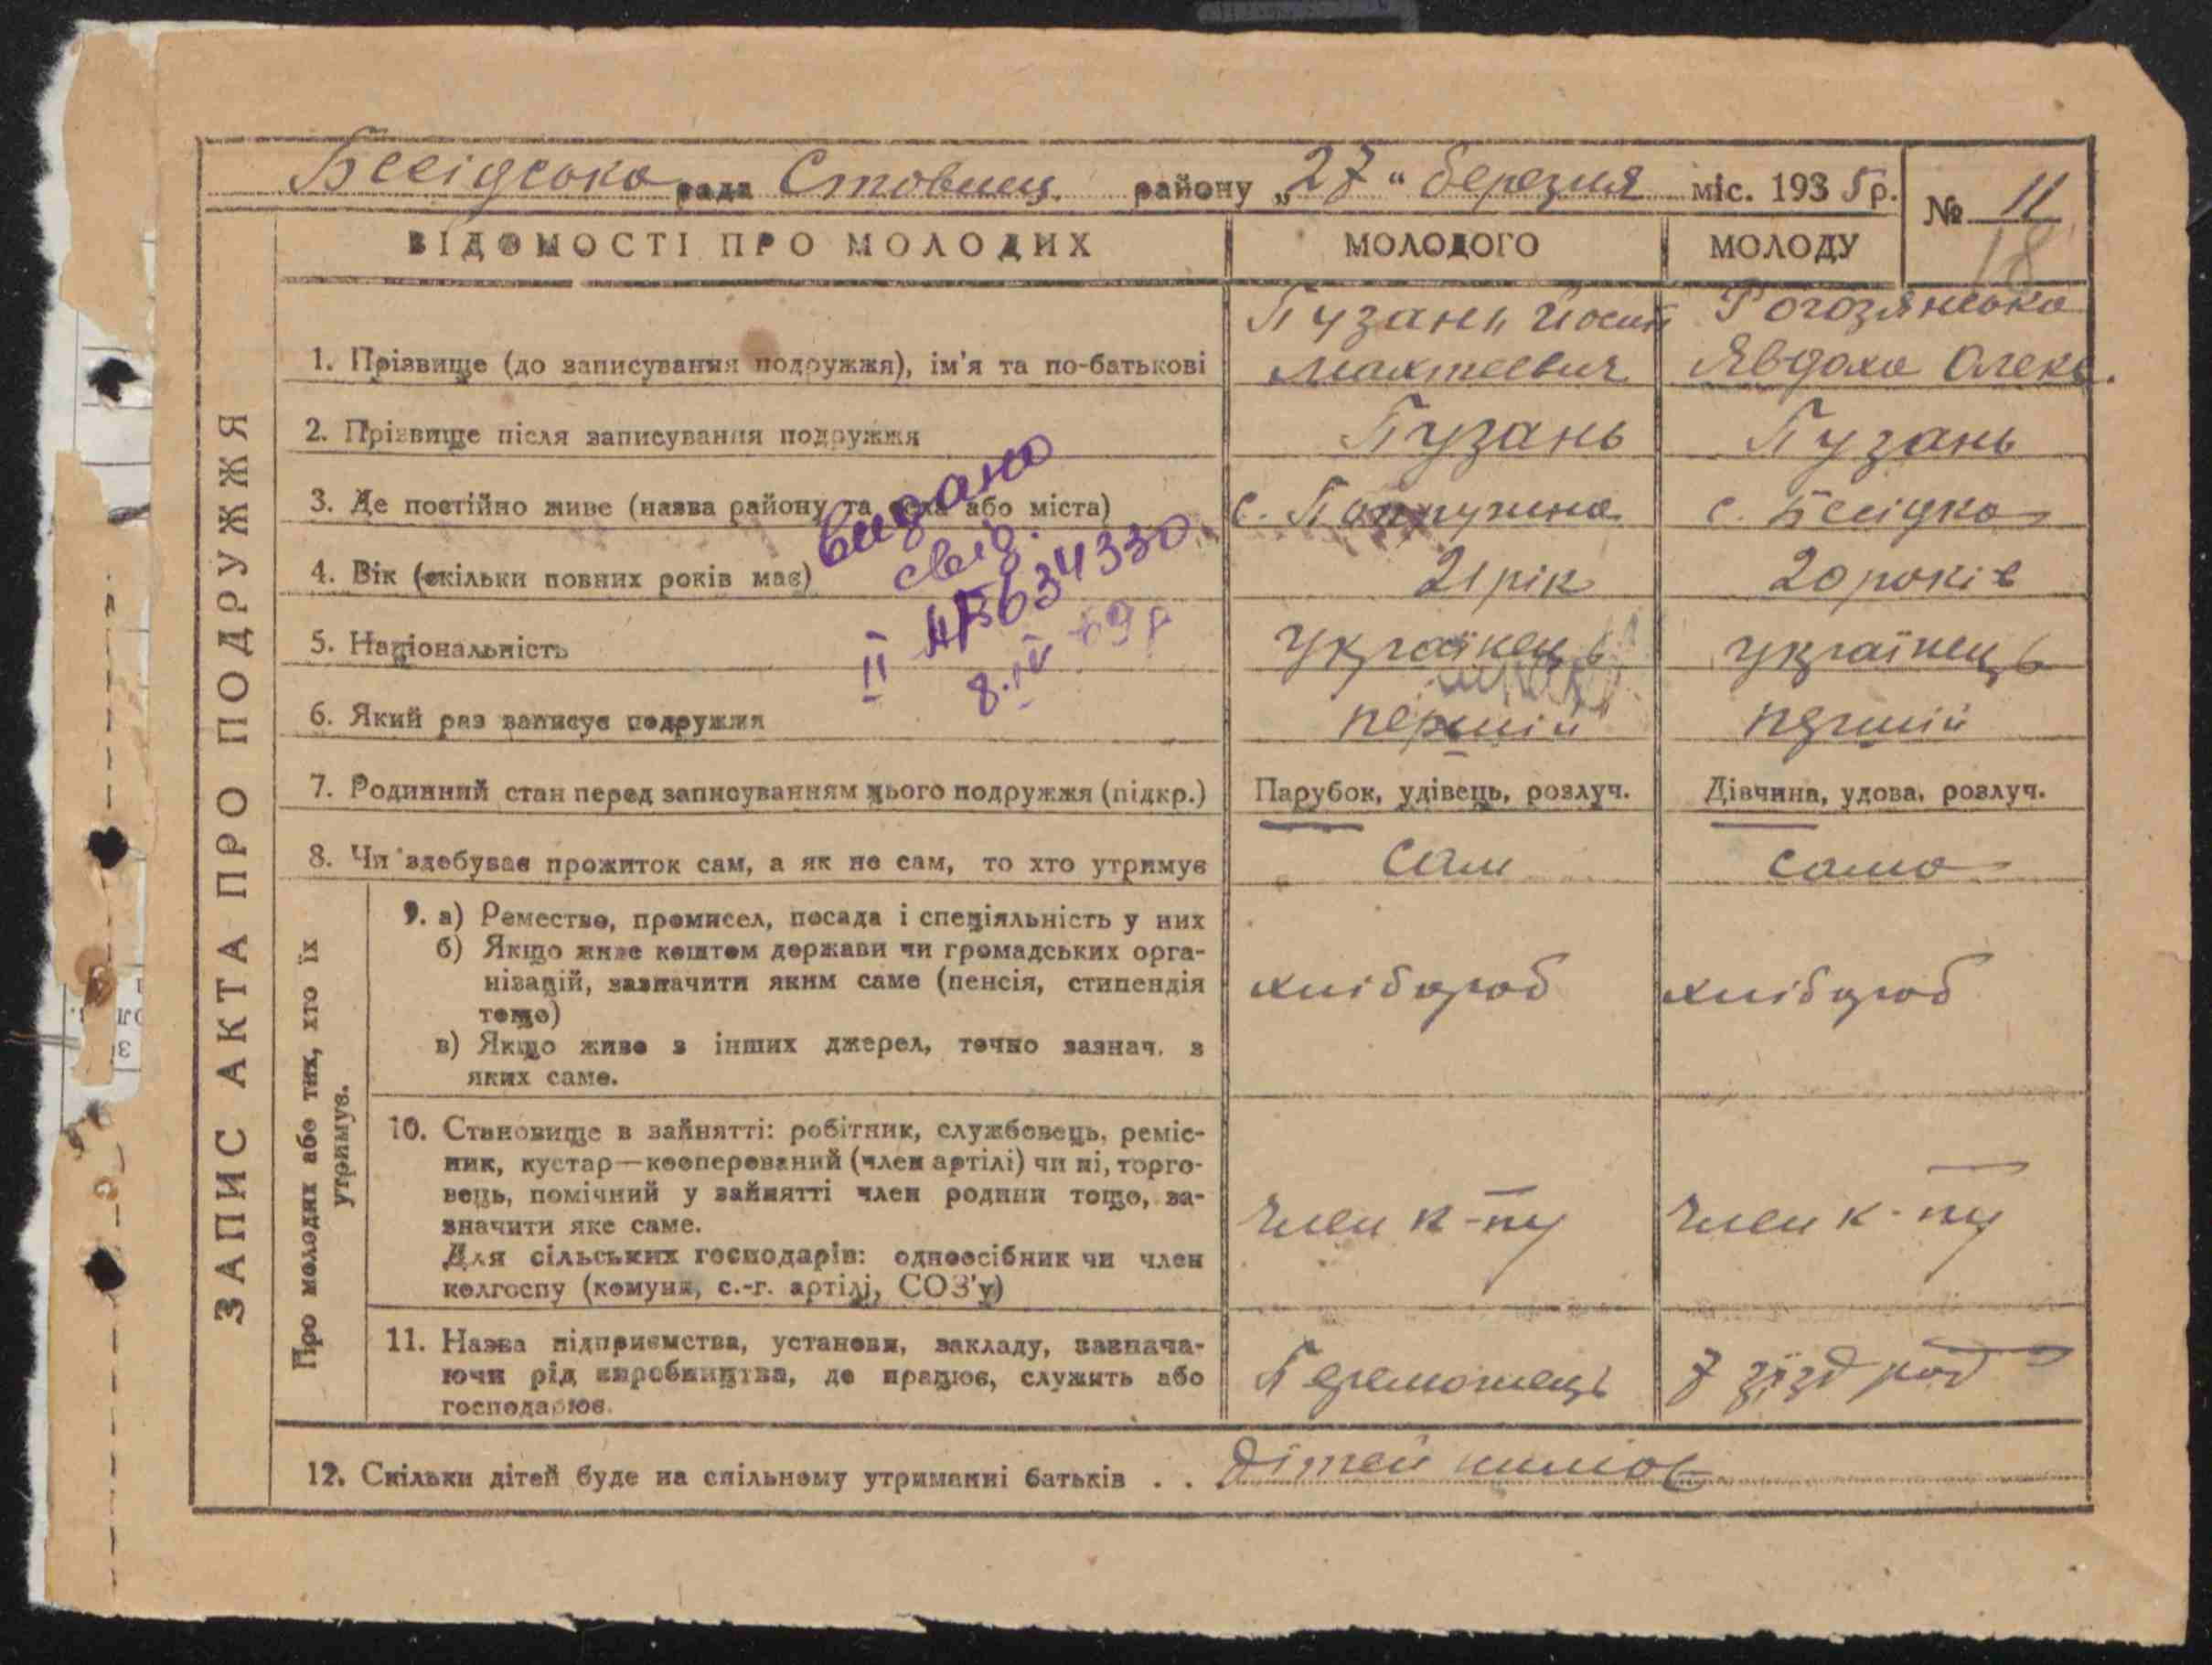 Бесідська рада Ставищ. району „27“ березня міс. 1935 р.
№ 11
18
ВІДОМОСТІ ПРО МОЛОДИХ
МОЛОДОГО
МОЛОДУ
ЗАПИС АКТА ПРО ПОДРУЖЖЯ
1. Прізвище (до записування подружжя), ім'я та по-батькові
Пузань Йосип
Махтеевич
Рогозянська
Явдоха Олекс.
2. Прізвище після записування подружжя
Пузань
Пузань
3. Де постійно живе (назва району та села або міста)
с.
с. Бесідка
4. Вік (скільки повних років має)
21 рік
20 років
видано
свід.
II АБ 634330
8.IV 69 р
5. Національність
Українець
українець
6. Який раз записує подружжя
перший
перший
7. Родинний стан перед записуванням цього подружжя (підкр.)
Парубок, удівець, розлуч.
Дівчина, удова, розлуч.
8. Чи здобуває прожиток сам, а як не сам, то хто утримує
сам
сама
Про молодих або тих, хто їх
утримує.
9. а) Ремество, промисел, посада і спеціяльність у них
б) Якщо живе коштом держави чи громадських орга-
нізацій, зазначити яким саме (пенсія, стипендія
тощо)
в) Якщо живе з інших джерел, точно зазнач. з
яких саме.
хлібороб
хлібороб
10. Становище в зайнятті: робітник, службовець, реміс-
ник, кустар—кооперований (член артілі) чи ні, торго-
вець, помічний у зайнятті член родини тощо, за-
значити яке саме.
Для сільських господарів: одноосібник чи член
колгоспу (комуни, с.-г. артілі, СОЗ'у)
член к-пу
член к-пу
11. Назва підприємства, установи, закладу, зазнача-
ючи рід виробництва, де працює, служить або
господарює.
Переможець
7 зїзд рад
12. Скільки дітей буде на спільному утриманні батьків . .
Дітей